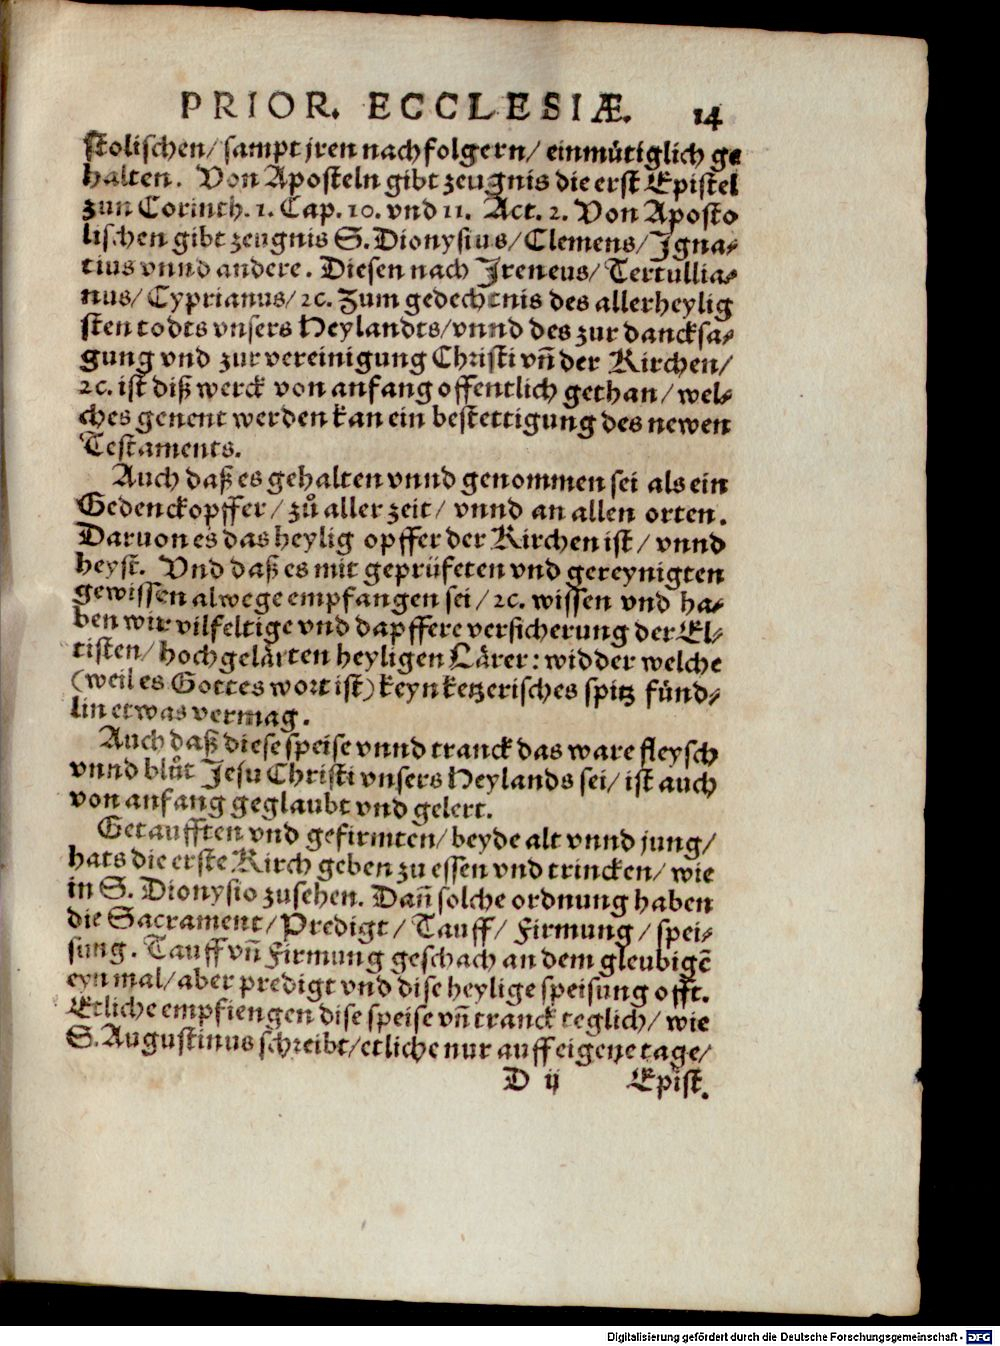 PRIOR. ECCLESIÆ. 14
stolischen/ sampt jren nachfolgern/ einmütiglich ge
halten. Von Aposteln gibt zeugnis die erst Epistel
zun Corinth. 1. Cap. 10. vnd 11. Act. 2. Von Aposto
lischen gibt zeugnis S. Dionysius/ Clemens/ Igna-
tius vnnd andere. Diesen nach Ireneus/ Tertullia-
nus/ Cyprianus/ ꝛc. Zum gedechtnis des allerheylig
sten todts vnsers Heylandts/ vnnd des zur dancksa-
gung vnd zur vereinigung Christi vñ der Kirchen/
ꝛc. ist diß werck von anfang offentlich gethan/ wel-
ches genent werden kan ein bestettigung des newen
Testaments.
Auch daß es gehalten vnnd genommen sei als ein
Gedenckopffer/ zů aller zeit/ vnnd an allen orten.
Daruon es das heylig opffer der Kirchen ist/ vnnd
heyst. Vnd daß es mit geprüfeten vnd gereynigten
gewissen alwege empfangen sei/ ꝛc. wissen vnd ha-
ben wir vilfeltige vnd dapffere versicherung der El-
tisten/ hochgelärten heyligen Lärer: widder welche
(weil es Gottes wort ist) keyn ketzerisches spitz fünd-
lin etwas vermag.
Auch daß diese speise vnnd tranck das ware fleysch
vnnd blůt Jesu Christi vnsers Heylands sei/ ist auch
von anfang geglaubt vnd gelert.
Getaufften vnd gefirmten/ beyde alt vnnd jung/
hats die erste Kirch geben zu essen vnd trincken/ wie
in S. Dionysio zusehen. Dañ solche ordnung haben
die Sacrament/ Predigt/ Tauff/ Firmung/ spei-
sung. Tauff vñ Firmung geschach an dem gleubigẽ
eyn mal/ aber predigt vnd dise heylige speisung offt.
Etliche empfiengen dise speise vñ tranck teglich/ wie
S. Augustinus schreibt/ etliche nur auff eigene tage/
D ij Epist.
Digitalisierung gefördert durch die Deutsche Forschungsgemeinschaft - DFG